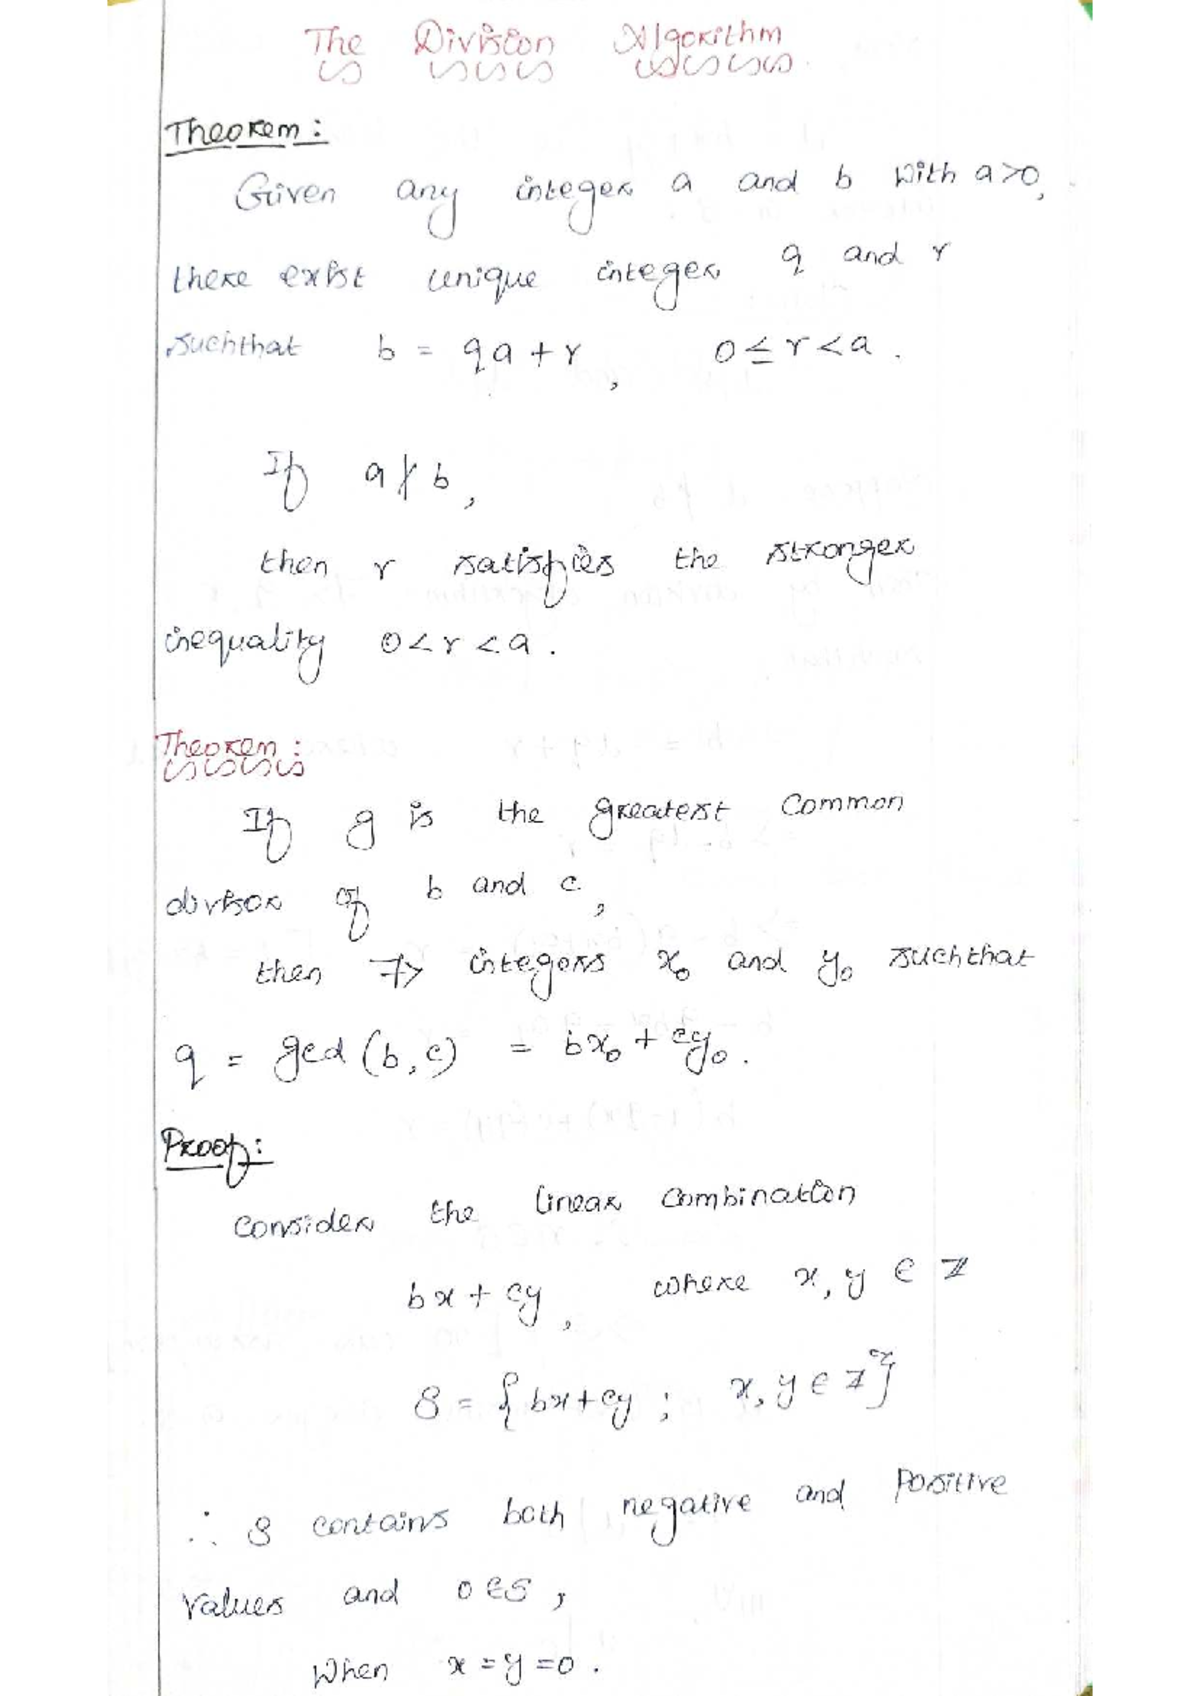 The Division Algorithm
Theorem:
Given any integer a and b with a>0,
there exist unique integer q and r
such that b = qa + r, 0 ≤ r < a.
If a∤b,
then r satisfies the stronger
inequality 0 < r < a.
Theorem:
If g is the greatest common
divisor of b and c,
then integers x₀ and y₀ such that
q = gcd (b, c) = bx₀ + cy₀.
Proof:
consider the linear combination
bx + cy, where x, y ∈ Z
S = {bx + cy ; x, y ∈ Z}
∴ S contains both negative and positive
values and 0 ∈ S,
when x = y = 0.